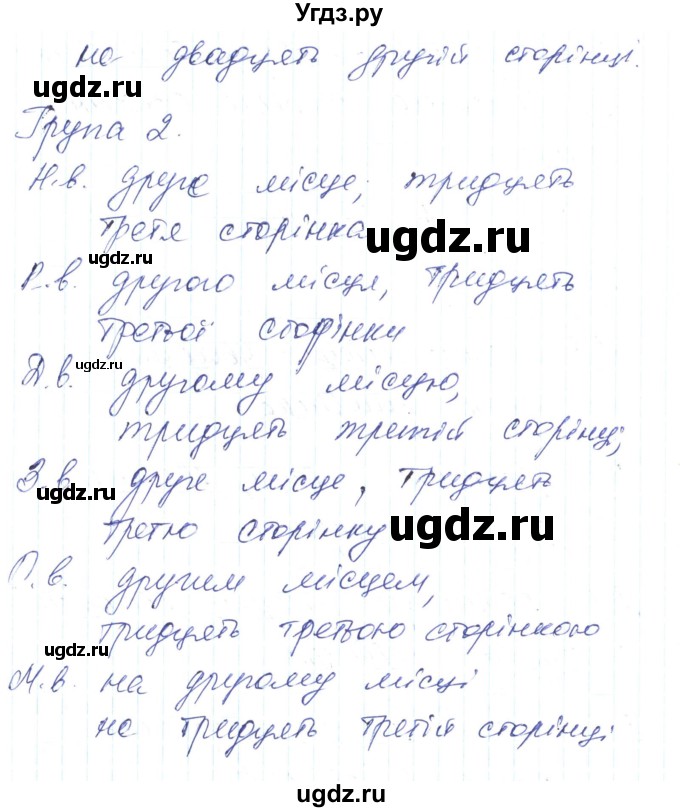 Угдз.ру
на двадцять другій сторінці.
ugdz.ru
Група 2.
Н.в. друге місце, тридцять
третя сторінка
ugdz.ru
ugdz.ru
Р.в. другого місця, тридцять
третьої сторінки
ugdz.ru
Д.в. другому місцю,
тридцять третій сторінці,
ugdz.ru
З.в. друге місце, тридцять
ugdz.ru
третю сторінку
ugdz.ru
О.в. другим місцем,
тридцять третьою сторінкою
ugdz.ru
М.в. на другому місці
на тридцять третій сторінці
ugdz.ru
ugdz.ru